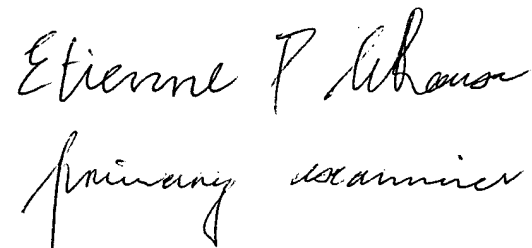 Etienne P LeRoux
primary examiner